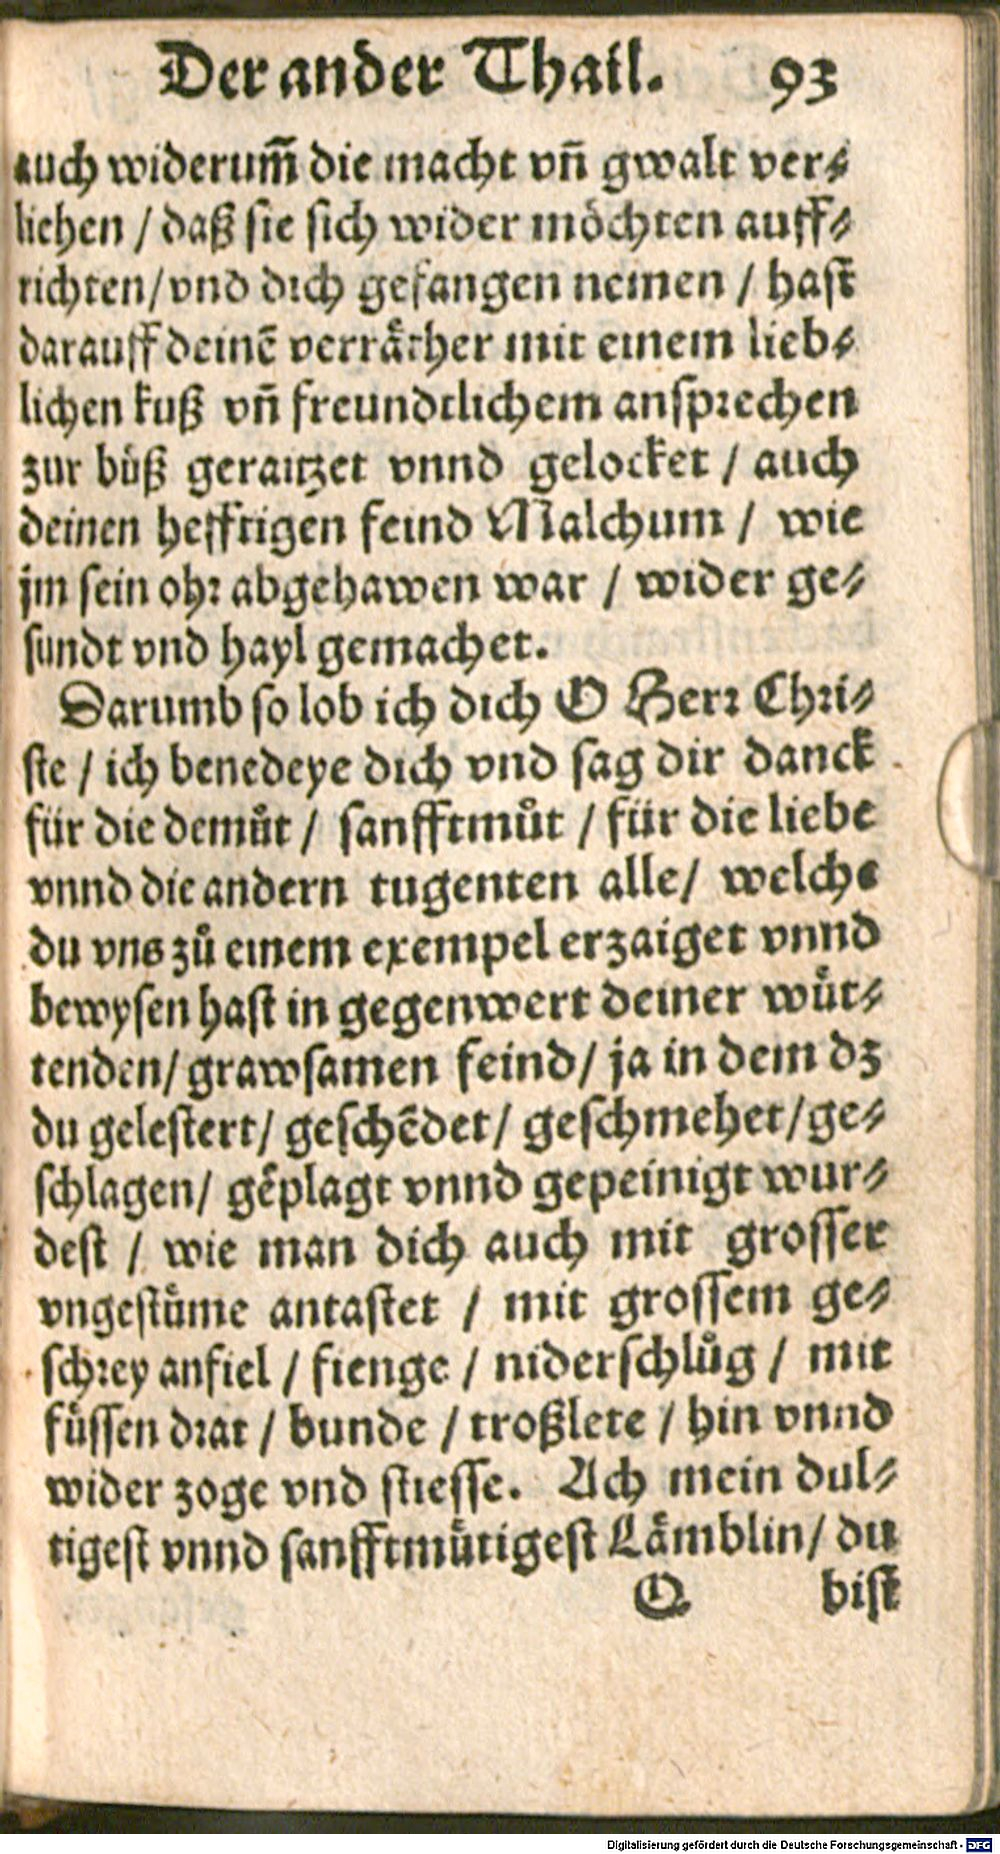 Der ander Thail. 93
auch widerum̃ die macht vñ gwalt ver⸗
liehen / daß sie sich wider möchten auff⸗
richten/vnd dich gefangen nemen / hast
darauff deinẽ verrä̈ther mit einem lieb⸗
lichen kuß vñ freundtlichem ansprechen
zur bůß geraitzet vnnd gelocket / auch
deinen hefftigen feind Malchum / wie
jm sein ohr abgehawen war / wider ge⸗
sundt vnd hayl gemachet.
Darumb so lob ich dich O Herr Chri⸗
ste / ich benedeye dich vnd sag dir danck
für die demůt / sanfftmůt / für die liebe
vnnd die andern tugenten alle/ welche
du vns zů einem exempel erzaiget vnnd
bewysen hast in gegenwert deiner wüt⸗
tenden/grawsamen feind/ ja in dem dz
du gelestert/ geschẽdet/ geschmehet/ge⸗
schlagen/ geplagt vnnd gepeinigt wur⸗
dest / wie man dich auch mit grosser
vngestüme antastet / mit grossem ge⸗
schrey anfiel / fienge / niderschlůg / mit
füssen drat / bunde / troßlete / hin vnnd
wider zoge vnd stiesse. Ach mein dul⸗
tigest vnnd sanfftmütigest Lämblin/ du
O bist
Digitalisierung gefördert durch die Deutsche Forschungsgemeinschaft - DFG